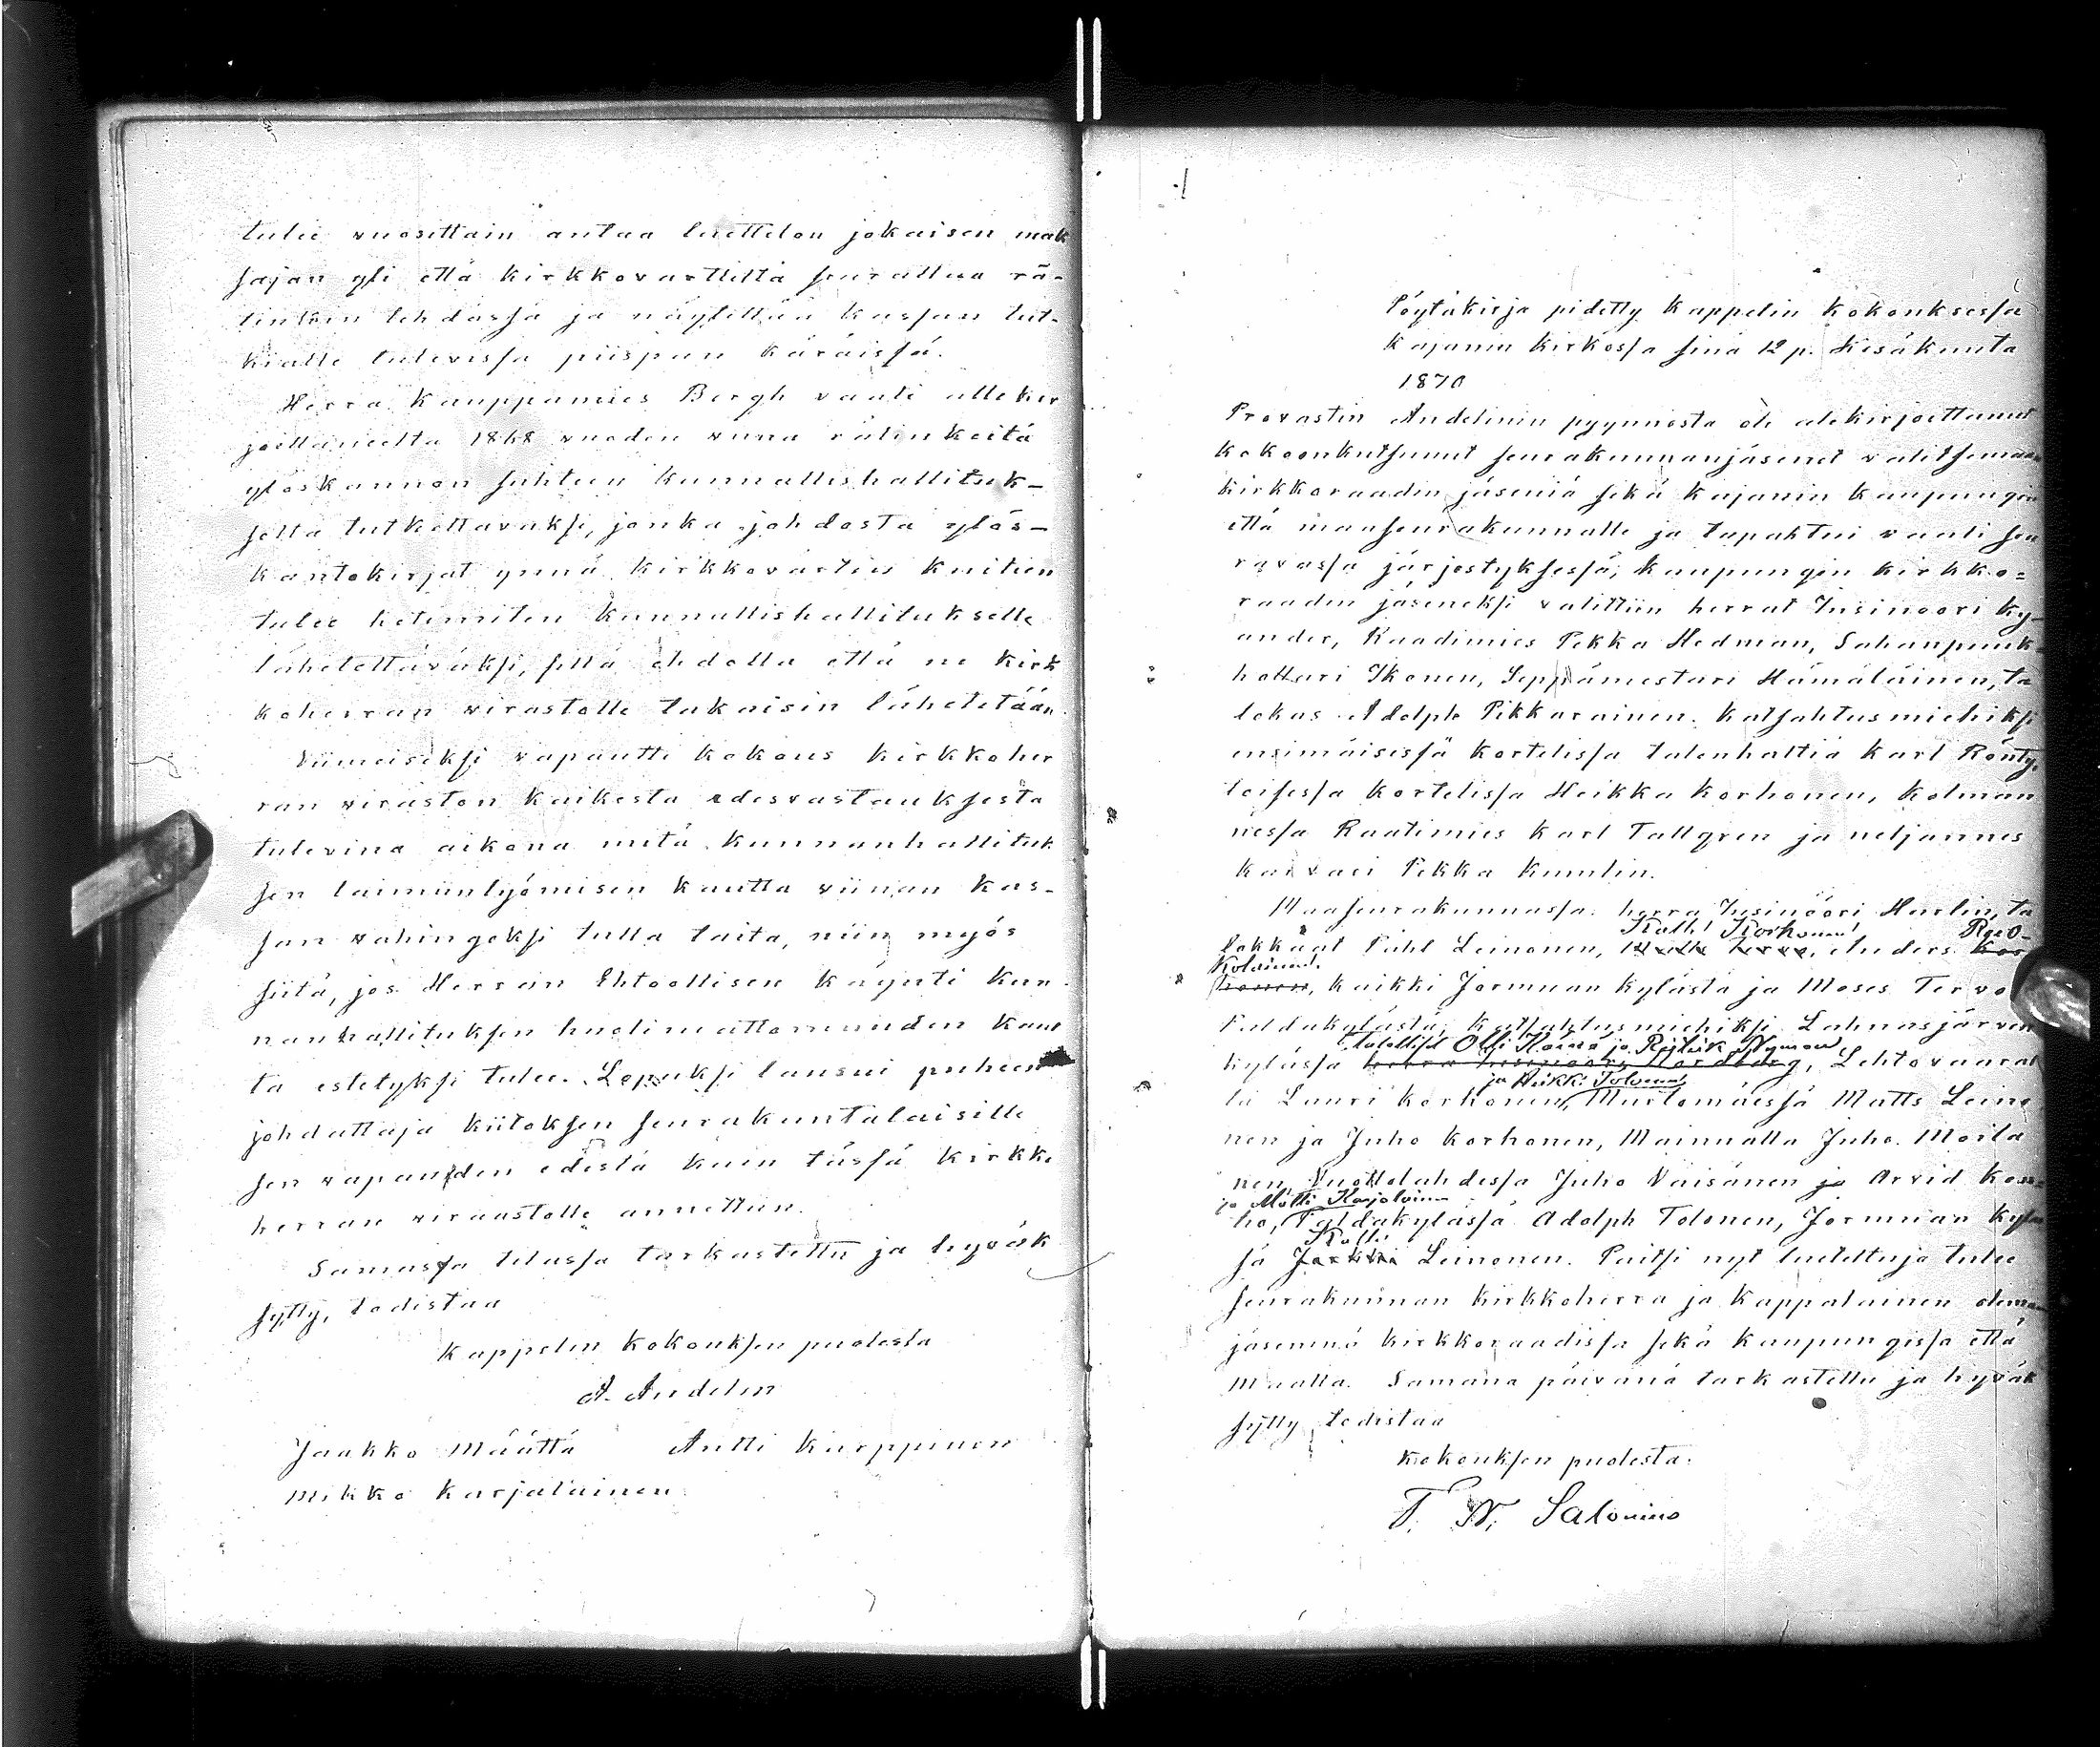 tulee vuosittain antaa luettelon jokaisen mak
sajan yli että kirkkovarttilta seurattua rä-
tinkein tehdässä ja näytettää kassan tut-
kialle tulevissa piispan käräissä.
Herra Kauppamies Bergh vaati allekir
joittaneelta 1868 vuoden vuna rätinkeitä
ylöskannon suhteen kunnallishallituk-
selta tutkettavaksi, jonka johdosta ylös-
kantokirjat ynnä kirkkovartin kuitien
tulee hetimiten kunnallishallitukselle
lähetettäväksi, sillä ehdolla että ne kirk
koherran virastolle takaisin lähetetään.
Viimeiseksi vapautti kokous kirkkoher
ran viraston kaikesta edesvastauksesta
tulevina aikona mitä kunnanhallituk
sen laiminlyömisen kautta viinan kas-
san vahingoksi tulla taita, niin myös
siitä, jos Herran Ehtoollisen käynti kun-
nanhallituksen huolimattomuuden kaut
ta estetyksi tulee. Lopuksi lausui puheen
johdattaja kiitoksen seurakuntalaisille
sen vapauden edestä kuin tässä kirkko
herran viraastolle annettiin.
Samassa tilassa tarkastettu ja hyväk
sytty, todistaa
Kappelin kokouksen puolesta
A. Andelin
Jaakko Määttä Antti Karppinen
Mikko Karjalainen
Pöytäkirja pidetty Kappelin kokouksessa
Kajanin kirkossa sinä 12 p. Kesäkuuta
1870
Provastin Andelinin pyynnöstä oli alekirjoittanut
kokoonkutsunut seurakunnanjäsenet valitsemaan
kirkkoraadin jäseniä sekä Kajanin kaupungin
että maaseurakunnalle ja tapahtui vaali seu
ravassa järjestyksessä; kaupungin kirkko=
raadin jäseneksi valittiin herrat Insinööri Ky-
ander, Raadimies Pekka Hedman, Sahanpuuk-
hottari Ikonen, Seppämestari Hämäläinen, ta
lokas Adolph Pikkarainen. Katsahtusmiehiksi
ensimäisessä kortelissa talonhaltia Karl Rönty,
toisessa kortelissa Heikka Korhonen, kolman
nessa Raatimies Karl Tallgren ja neljännes
karvari Pekka Kumlin.
Maaseurakunnassa: herra Insinööri Harlin, ta
Kalle Korhonen
lokkaat Påhl Leinonen, Anders Kor
Kolainen.
honen, kaikki Jormuan kylästä ja Moses Tervo
kylästä; katsahtusmiehiksi Lahnasjärven
Talolliset Olli Härmä ja Nyman
kylässä herra Insinööri Nordberg, Lehtovaaral
ja Heikki Tolonen
la Lauri Korhonen, Murtomäessä Matts Leino
nen ja Juho Korhonen, Mainualla Juho Moila
nen, Vuottolahdessa Juho Väisänen ja Arvid Kem-
ja Matti Karjalainen
ho, kylässä Adolph Tolonen, Jormuan kyläs
Kalle
sä Leinonen. Paitsi nyt lueteltuja tulee
seurakunnan kirkkoherra ja Kappalainen oleman
jäseninä kirkkoraadissa sekä kaupungissa että
Maalla. Samana päivänä tarkastettu ja hyväk
sytty todistaa
kokouksen puolesta.
F. W. Salonius